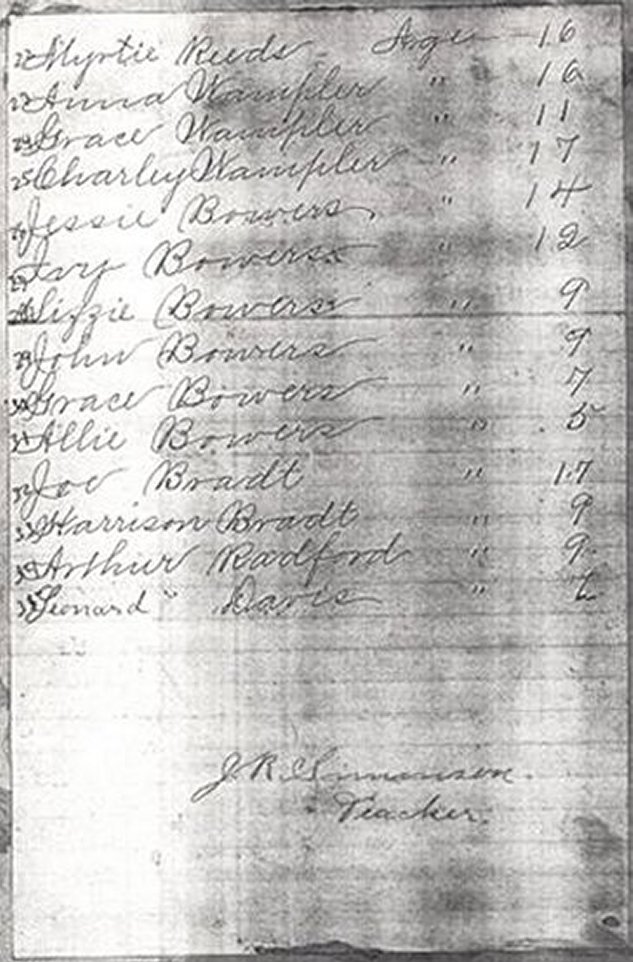 Myrtie Reeds Age 16
Anna Wampler " 16
Grace Wampler " 11
25 Charley Wampler " 17
Jessie Bowers " 14
Ivy Bowers " 12
Lizzie Bowers " 9
29 John Bowers " 9
30 Grace Bowers " 7
31 Allie Bowers " 5
32 Joe Bradt " 17
33 Harrison Bradt " 9
34 Arthur Radford " 9
35 Leonard " Davis "
J R Simonson
Teacher.